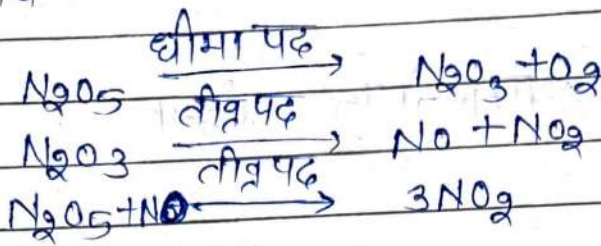 N2O5 धीमा पद → N2O3 + O2
N2O3 तीव्र पद → NO + NO2
N2O5 + NO तीव्र पद → 3NO2